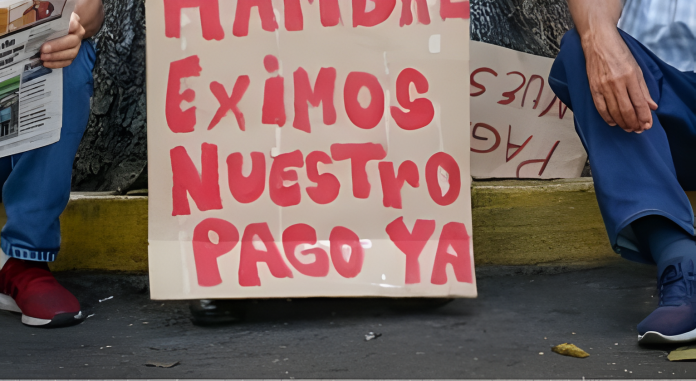 HAMBRE
EXiMOS
NUESTrO
PAGO YA